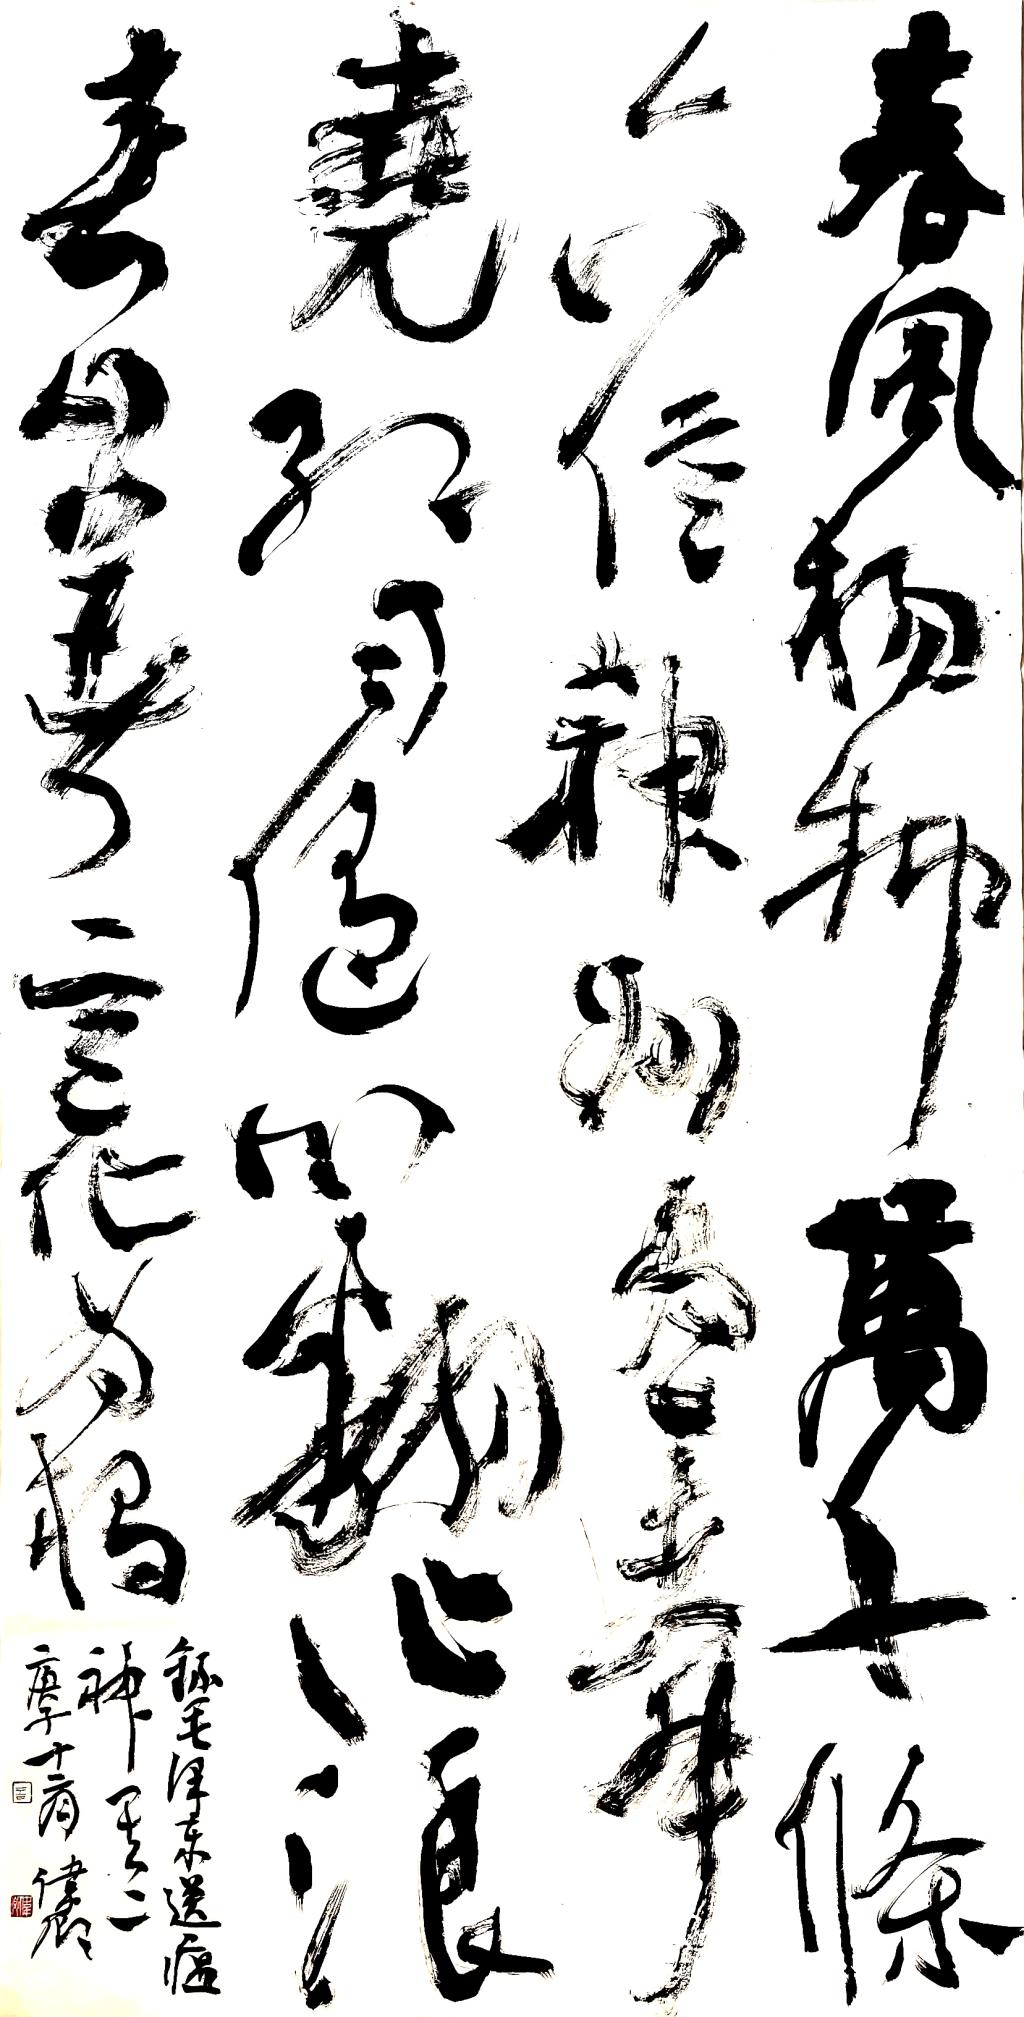 春風楊柳萬千條
六億神州盡舜
堯紅雨隨心翻作浪
青山着意化为橋
錄毛泽东送瘟
神其二
庚子